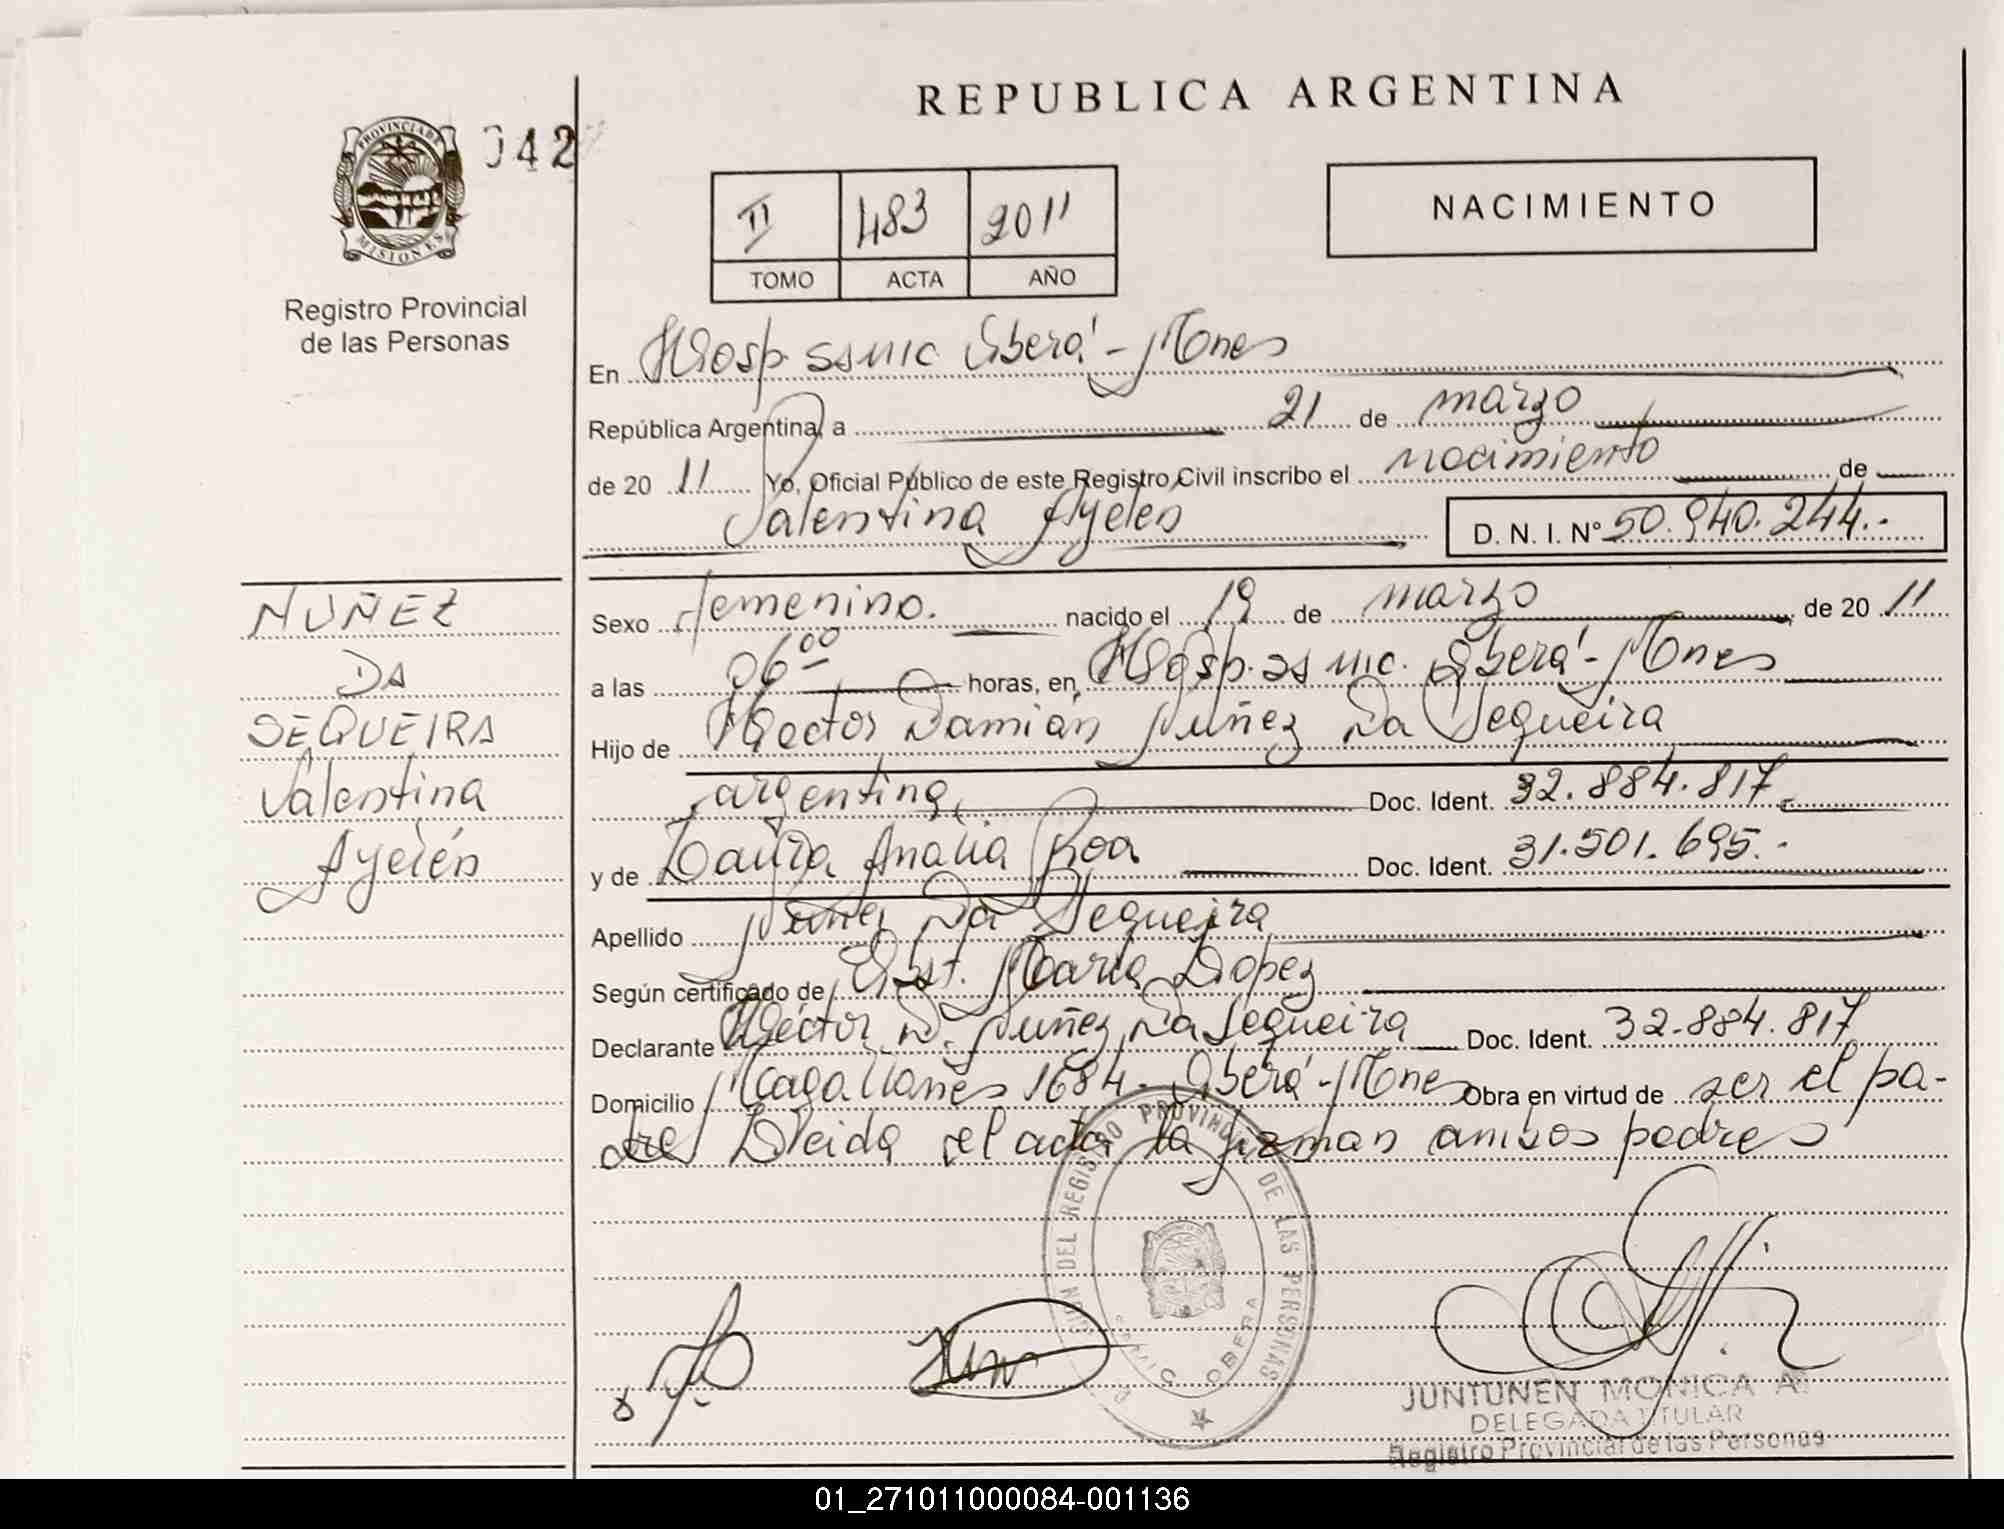 REPUBLICA ARGENTINA
PROVINCIA DE
MISIONES
042
Registro Provincial
de las Personas
II 483 2011
TOMO ACTA AÑO
NACIMIENTO
En Hosp. SSMIC Oberá - Mnes
República Argentina, a 21 de marzo
de 20 11 Yo, Oficial Público de este Registro Civil inscribo el nacimiento de
Valentina Ayelén D. N. I. Nº 50.940.244.-
NUÑEZ
DA
SEQUEIRA
Valentina
Ayelén
Sexo femenino. nacido el 19 de marzo de 20 11
a las 06⁰⁰ horas, en Hosp. SSMIC. Oberá - Mnes
Hijo de Héctor Damián Nuñez Da Sequeira
argentina, Doc. Ident. 32.884.817
y de Laura Analia Roa Doc. Ident. 31.501.695.-
Apellido Nuñez Da Sequeira
Según certificado de Obst. María Lopez
Declarante Héctor D. Nuñez Da Sequeira Doc. Ident. 32.884.817
Domicilio Magallanes 1684 - Oberá - Mnes Obra en virtud de ser el pa-
dre Leida el acta la firman ambos padres
DEL REGISTRO PROVINCIAL DE LAS PERSONAS
OBERA
JUNTUNEN MONICA A.
DELEGADA TITULAR
Registro Provincial de las Personas
01_271011000084-001136